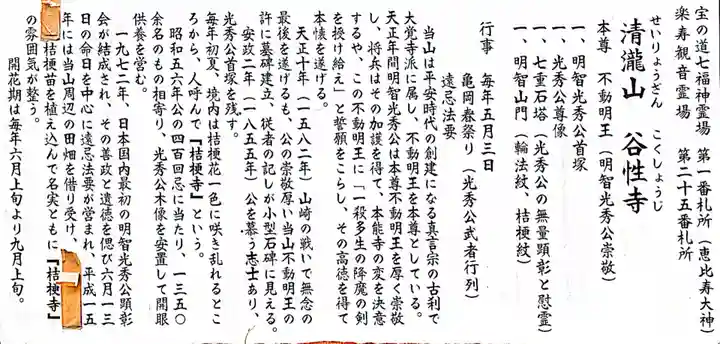 宝の道七福神霊場 第一番札所(恵比寿大神)
楽寿観音霊場 第二十五番札所
せいりょうざん こくしょうじ
清瀧山 谷性寺
本尊 不動明王(明智光秀公崇敬)
一、明智光秀公首塚
一、光秀公尊像
一、七重石塔(光秀公の無量顕彰と慰霊)
一、明智山門(輪法紋、桔梗紋)
行事 毎年五月三日
亀岡春祭り(光秀公武者行列)
遠忌法要
当山は平安時代の創建になる真言宗の古刹で
大覚寺派に属し、不動明王を本尊としている。
天正年間明智光秀公は本尊不動明王を厚く崇敬
し、将兵はその加護を得て、本能寺の変を決意
するや、この不動明王に「一殺多生の降魔の剣
を授け給え」と誓願をこらし、その高徳を得て
本懐を遂げる。
天正十年(一五八二年)山崎の戦いで無念の
最後を遂げるも、公の崇敬厚い当山不動明王の
許に墓碑建立、従者の記しが小型石碑に見える。
安政二年(一八五五年)公を慕う志士あり、
光秀公首塚を残す。
毎年初夏、境内は桔梗花一色に咲き乱れるとこ
ろから、人呼んで『桔梗寺』という。
昭和五六年公の四百回忌に当たり、一三五〇
余名のもの相寄り、光秀公木像を安置して開眼
供養を営む。
一九七二年、日本国内最初の明智光秀公顕彰
会が結成され、その善政と遺徳を偲び六月一三
日の命日を中心に遠忌法要が営まれ、平成一五
年には当山周辺の田畑を借り受け、
桔梗苗を植え込んで名実ともに『桔梗寺』
の雰囲気が整う。
開花期は毎年六月上旬より九月上旬。